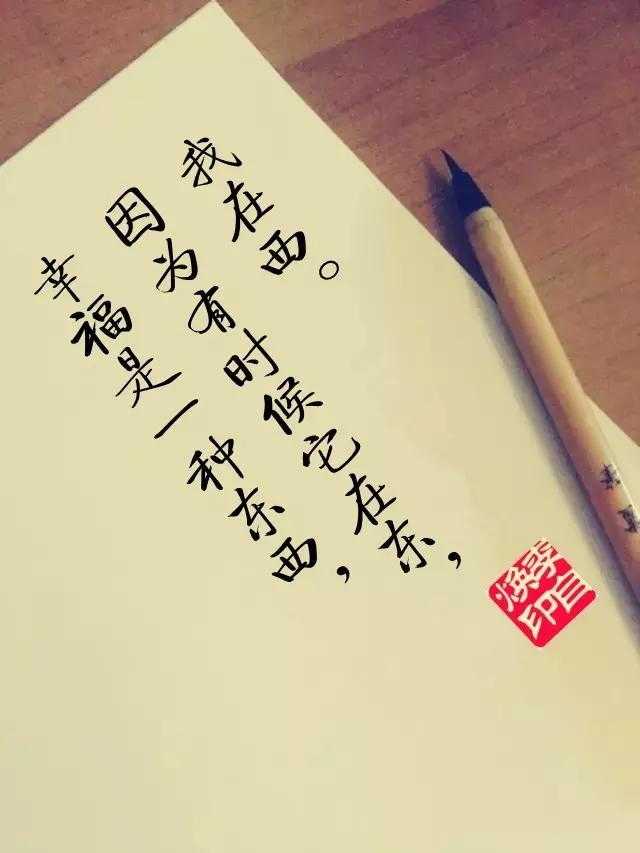 幸福是一种东西，
因为有时候它在东，
我在西。